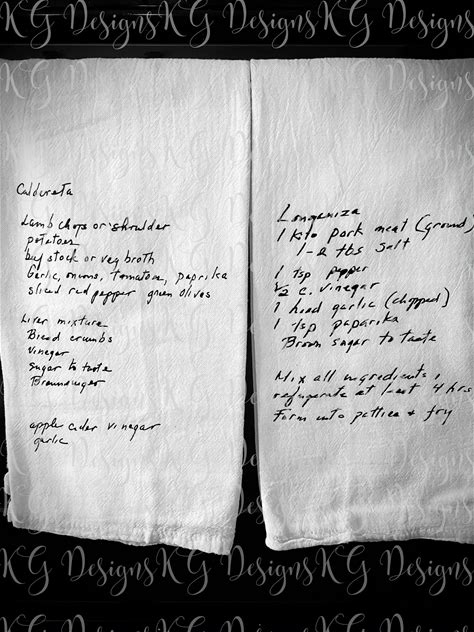 KG DesignsKG Designs
KG DesignsKG Designs
Caldereta
Lamb chops or shoulder
potatoes
beef stock or veg broth
Garlic, onions, tomatoes, paprika
sliced red pepper green olives
Liver mixture
Bread crumbs
Vinegar
Sugar to taste
apple cider vinegar
garlic
Longaniza
1 kilo pork meat (ground)
1-2 tbs salt
1 tsp pepper
1/2 c. vinegar
1 head garlic (chopped)
1 tsp paparika
Brown sugar to taste
Mix all ingredients,
refrigerate at least 4 hrs
Form into patties + fry
KG DesignsKG Designs
KG DesignsKG Designs